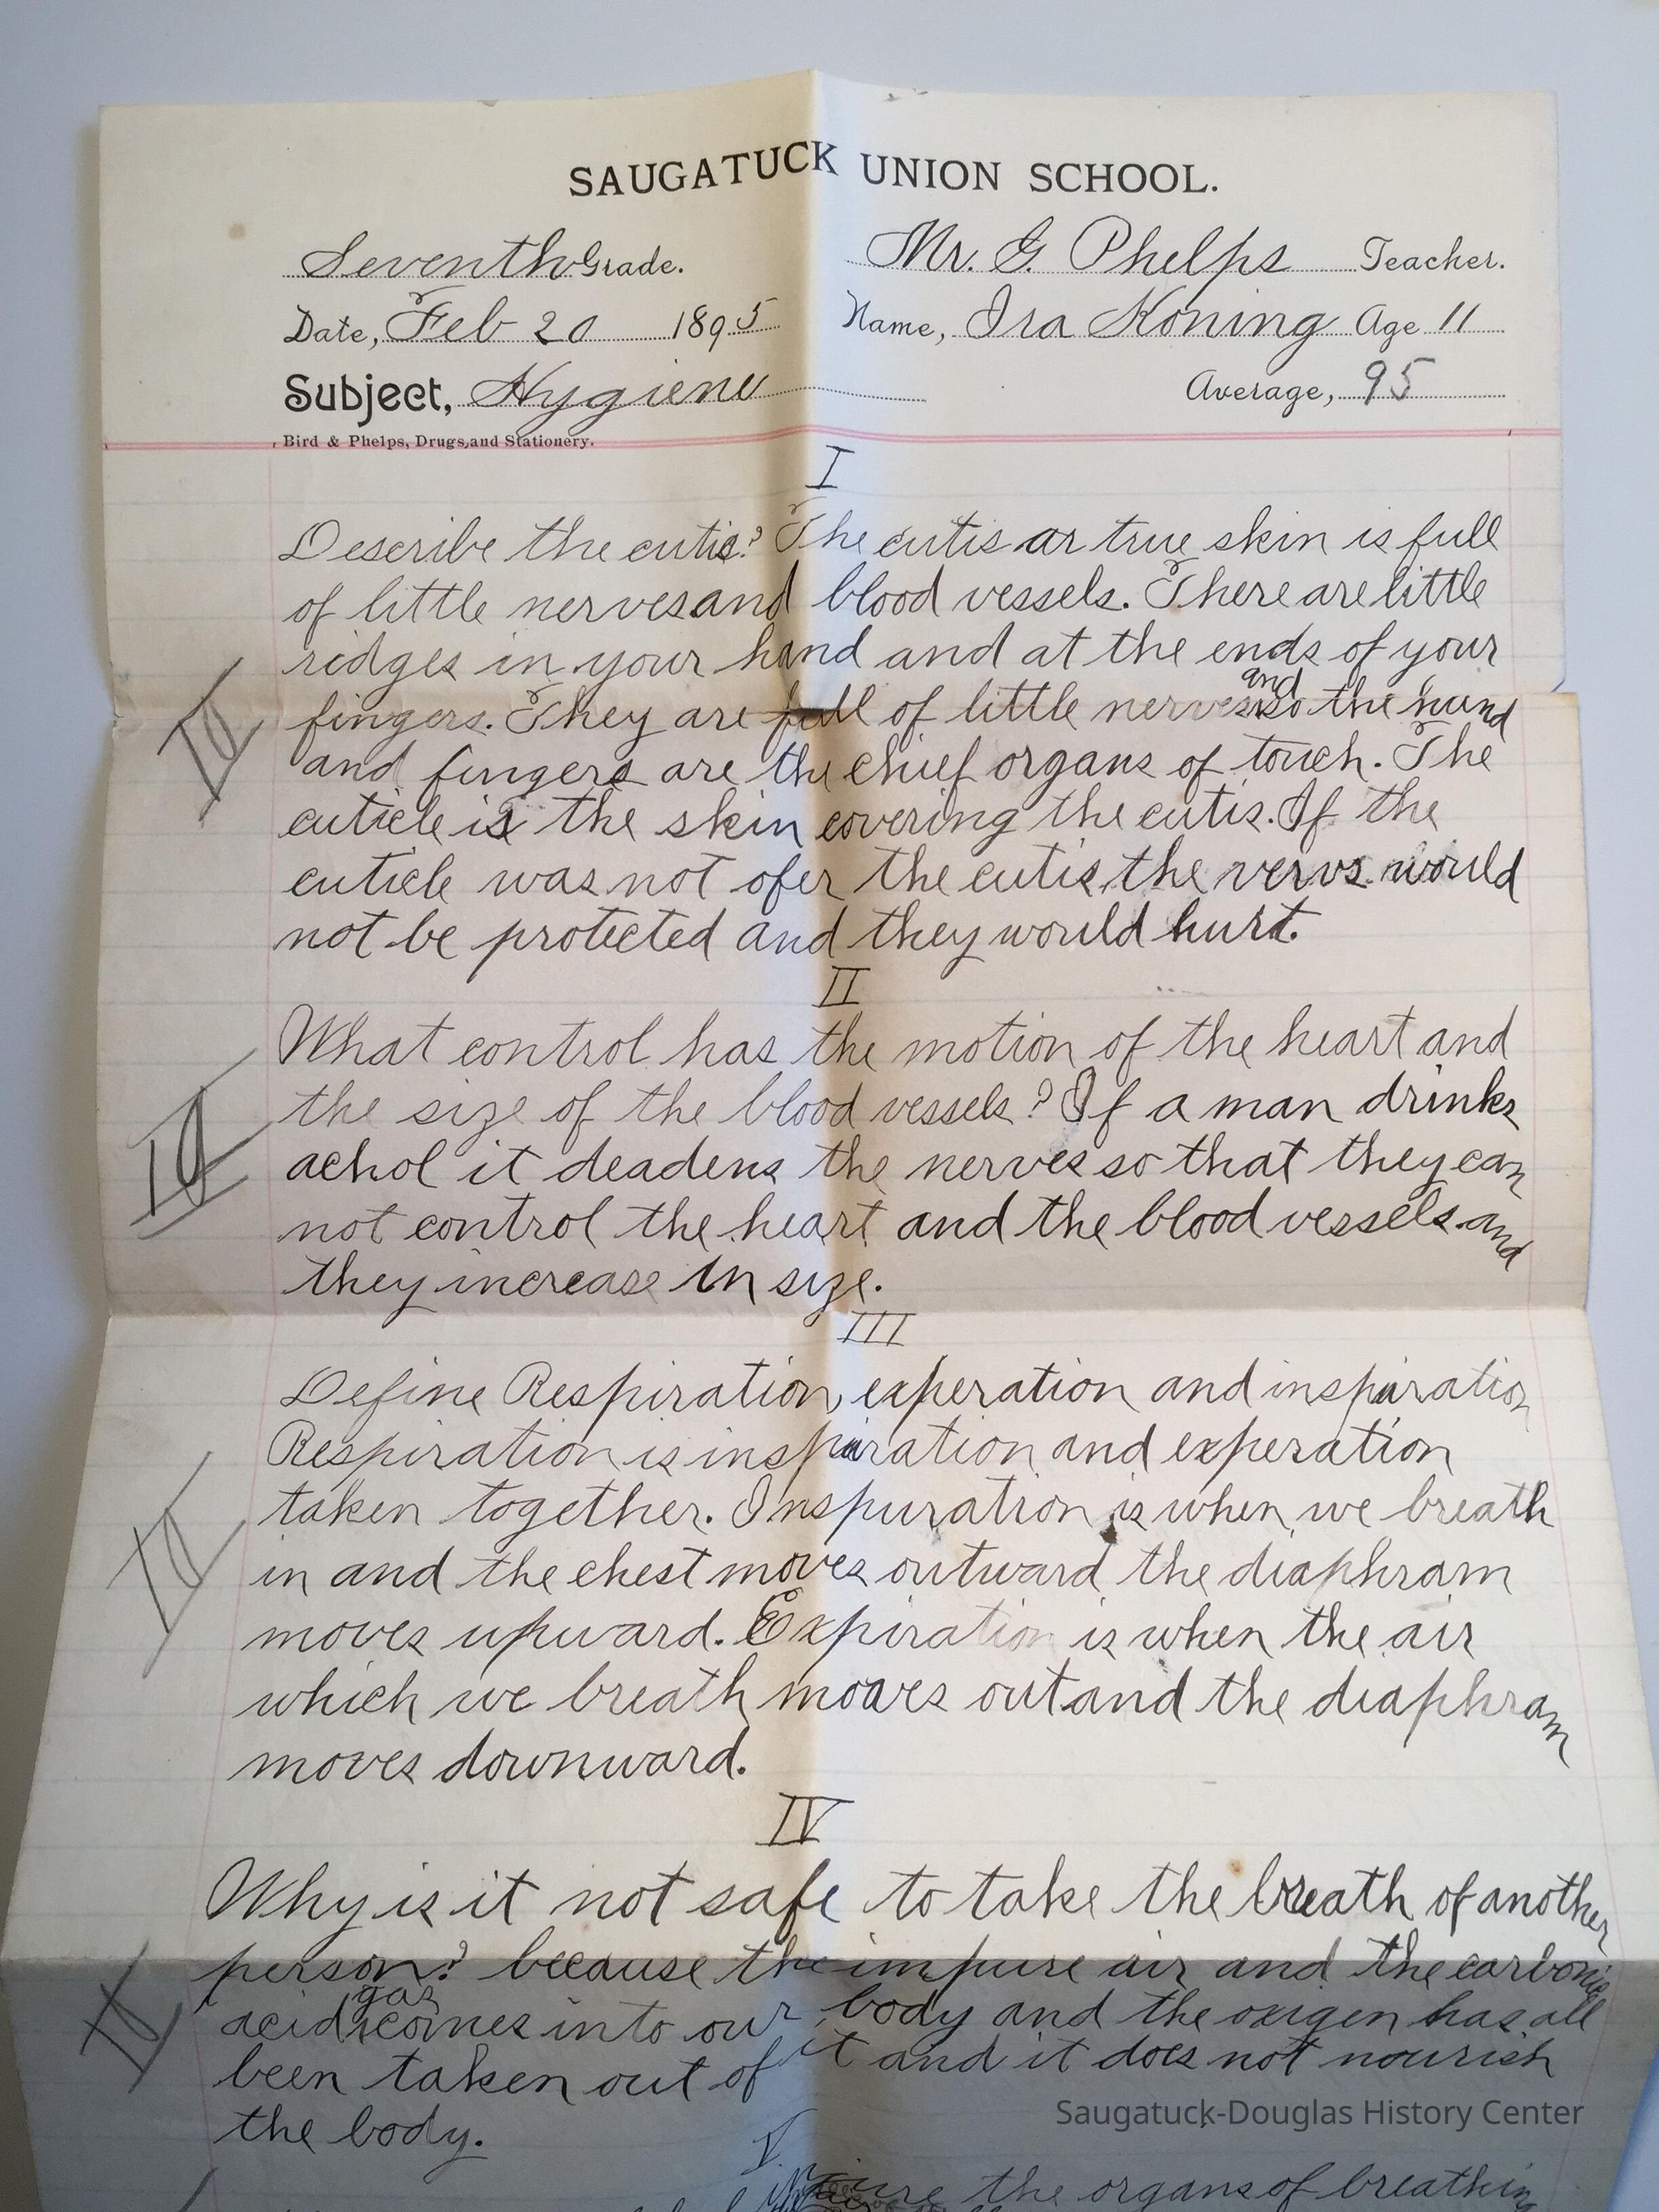 SAUGATUCK UNION SCHOOL.
Seventh Grade. Mr. G. Phelps Teacher.
Date, Feb 20 1895 Name, Ira Koning Age 11
Subject, Hygiene Average, 95
Bird & Phelps, Drugs, and Stationery.
I
Describe the cutis? The cutis or true skin is full
of little nerves and blood vessels. There are little
ridges in your hand and at the ends of your
fingers. They are full of little nerves and so the hand
and fingers are the chief organs of touch. The
cuticle is the skin covering the cutis. If the
cuticle was not ofer the cutis, the nervs would
not be protected and they would hurt.
10
II
What control has the motion of the heart and
the size of the blood vessels? If a man drinks
achol it deadens the nerves so that they can
not control the heart and the blood vessels and
they increase in size.
10
III
Define Respiration, experation and inspiration
Respiration is inspiration and experation
taken together. Inspiration is when we breath
in and the chest moves outward the diaphram
moves upward. Expiration is when the air
which we breath moves out and the diaphram
moves downward.
10
IV
Why is it not safe to take the breath of another
person? because the impure air and the carbonic
acid gas comes into our body and the oxigen has all
been taken out of it and it does not nourish
the body.
10
V.
the organs of breathing
Saugatuck-Douglas History Center